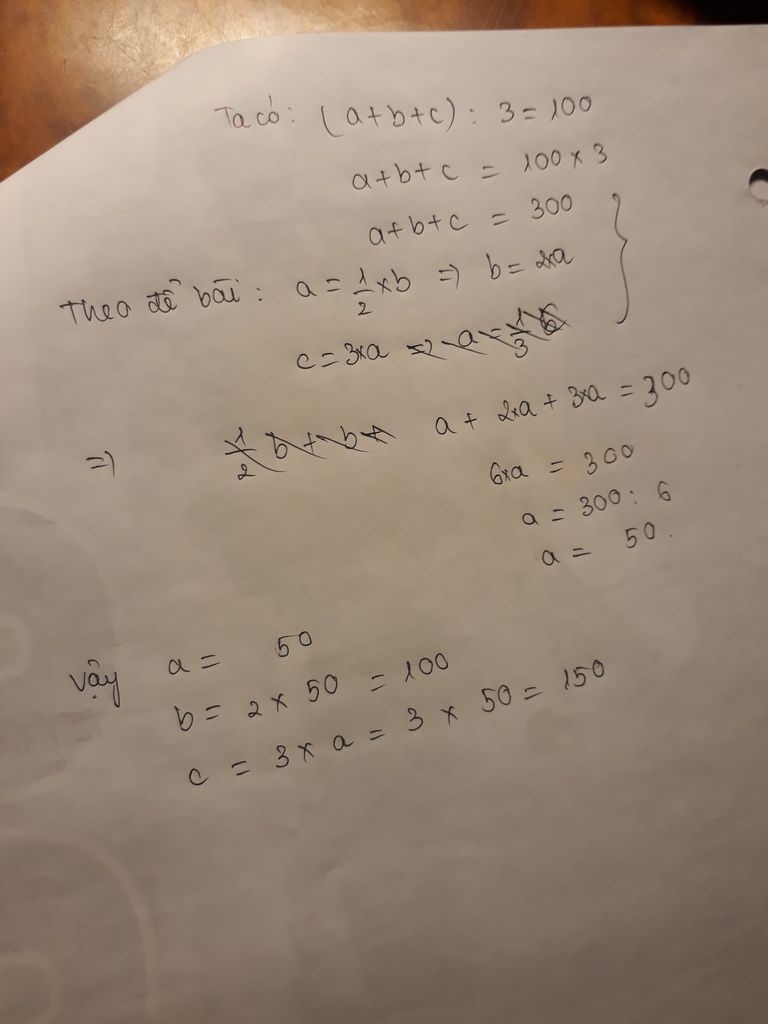 Ta có: (a+b+c): 3 = 100
a+b+c = 100 x 3
a+b+c = 300
Theo đề bài: a = 1/2 x b => b = 2xa
c = 3xa => a = 1/3
=> 1/2 b + b + a + 2xa + 3xa = 300
6xa = 300
a = 300: 6
a = 50.
Vậy a = 50
b = 2 x 50 = 100
c = 3 x a = 3 x 50 = 150